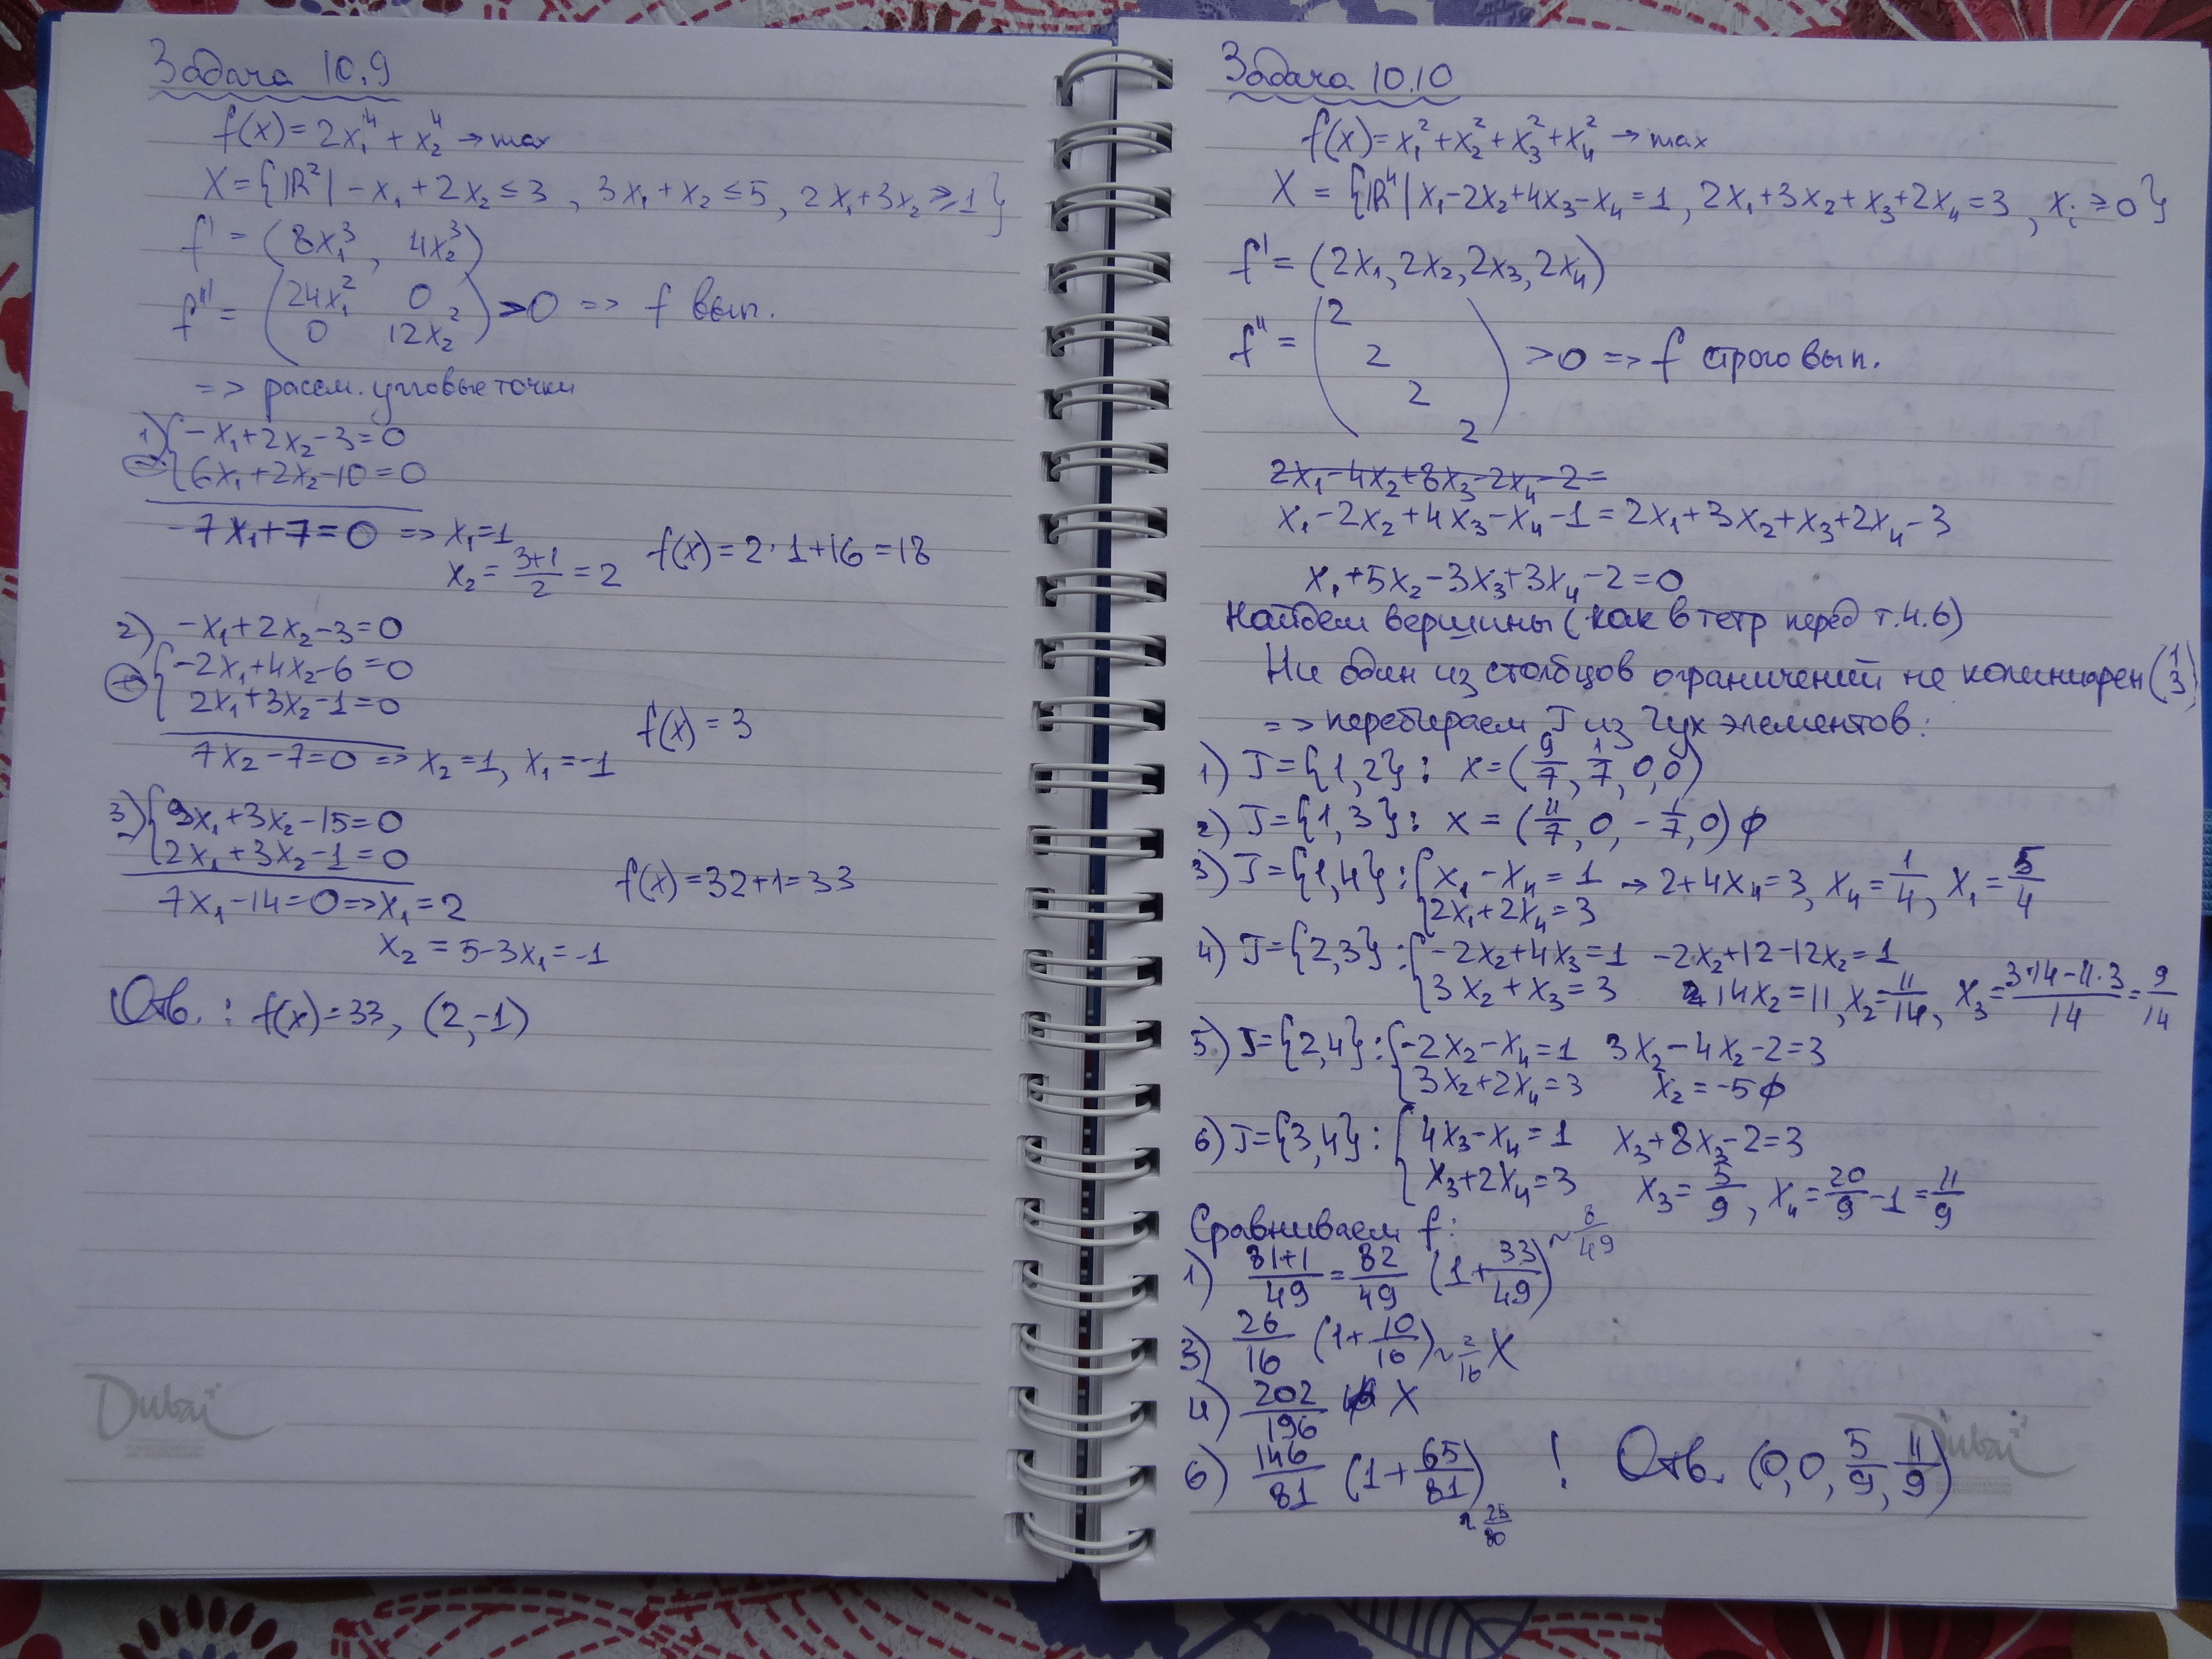 Задача 10.9
f(x) = 2x₁⁴ + x₂⁴ → max
X = {ℝ² | -x₁ + 2x₂ ≤ 3, 3x₁ + x₂ ≤ 5, 2x₁ + 3x₂ ≥ 1}
f' = (8x₁³, 4x₂³)
f'' = (24x₁² 0
0 12x₂²) >0 => f вып.
=> рассм. угловые точки
1) {-x₁ + 2x₂ - 3 = 0
⊖ {6x₁ + 2x₂ - 10 = 0
-7x₁ + 7 = 0 => x₁ = 1
x₂ = (3+1)/2 = 2 f(x) = 2·1 + 16 = 18
2) -x₁ + 2x₂ - 3 = 0
⊕ {-2x₁ + 4x₂ - 6 = 0
2x₁ + 3x₂ - 1 = 0
f(x) = 3
7x₂ - 7 = 0 => x₂ = 1, x₁ = -1
3) {9x₁ + 3x₂ - 15 = 0
2x₁ + 3x₂ - 1 = 0
f(x) = 32 + 1 = 33
7x₁ - 14 = 0 => x₁ = 2
x₂ = 5 - 3x₁ = -1
Отв.: f(x) = 33, (2, -1)
Dubai
Задача 10.10
f(x) = x₁² + x₂² + x₃² + x₄² → max
X = {ℝ⁴ | x₁ - 2x₂ + 4x₃ - x₄ = 1, 2x₁ + 3x₂ + x₃ + 2x₄ = 3, xᵢ ≥ 0}
f' = (2x₁, 2x₂, 2x₃, 2x₄)
f'' = (2
2
2
2) >0 => f строго вып.
2x₁ - 4x₂ + 8x₃ - 2x₄ - 2 =
x₁ - 2x₂ + 4x₃ - x₄ - 1 = 2x₁ + 3x₂ + x₃ + 2x₄ - 3
x₁ + 5x₂ - 3x₃ + 3x₄ - 2 = 0
Найдем вершины (как в тетр перед т.4.6)
Ни один из столбцов ограничений не колинеарен (1 3)
=> перебираем J из 2ух элементов:
1) J = {1,2}: x = (9/7, 1/7, 0, 0)
2) J = {1,3}: x = (11/7, 0, -1/7, 0) ∅
3) J = {1,4}: {x₁ - x₄ = 1 → 2 + 4x₄ = 3, x₄ = 1/4, x₁ = 5/4
2x₁ + 2x₄ = 3
4) J = {2,3}: {-2x₂ + 4x₃ = 1 -2x₂ + 12 - 12x₂ = 1
3x₂ + x₃ = 3 14x₂ = 11, x₂ = 11/14, x₃ = (3·14 - 11·3)/14 = 9/14
5) J = {2,4}: {-2x₂ - x₄ = 1 3x₂ - 4x₂ - 2 = 3
3x₂ + 2x₄ = 3 x₂ = -5 ∅
6) J = {3,4}: {4x₃ - x₄ = 1 x₃ + 8x₃ - 2 = 3
x₃ + 2x₄ = 3 x₃ = 5/9, x₄ = 20/9 - 1 = 11/9
Сравниваем f:
1) (81+1)/49 = 82/49 (1 + 33/49) ~ 8/49
3) 26/16 (1 + 10/16) ~ 2/16 X
4) 202/196 X
6) 146/81 (1 + 65/81) ~ 25/80 ! Отв. (0, 0, 5/9, 11/9)
Dubai